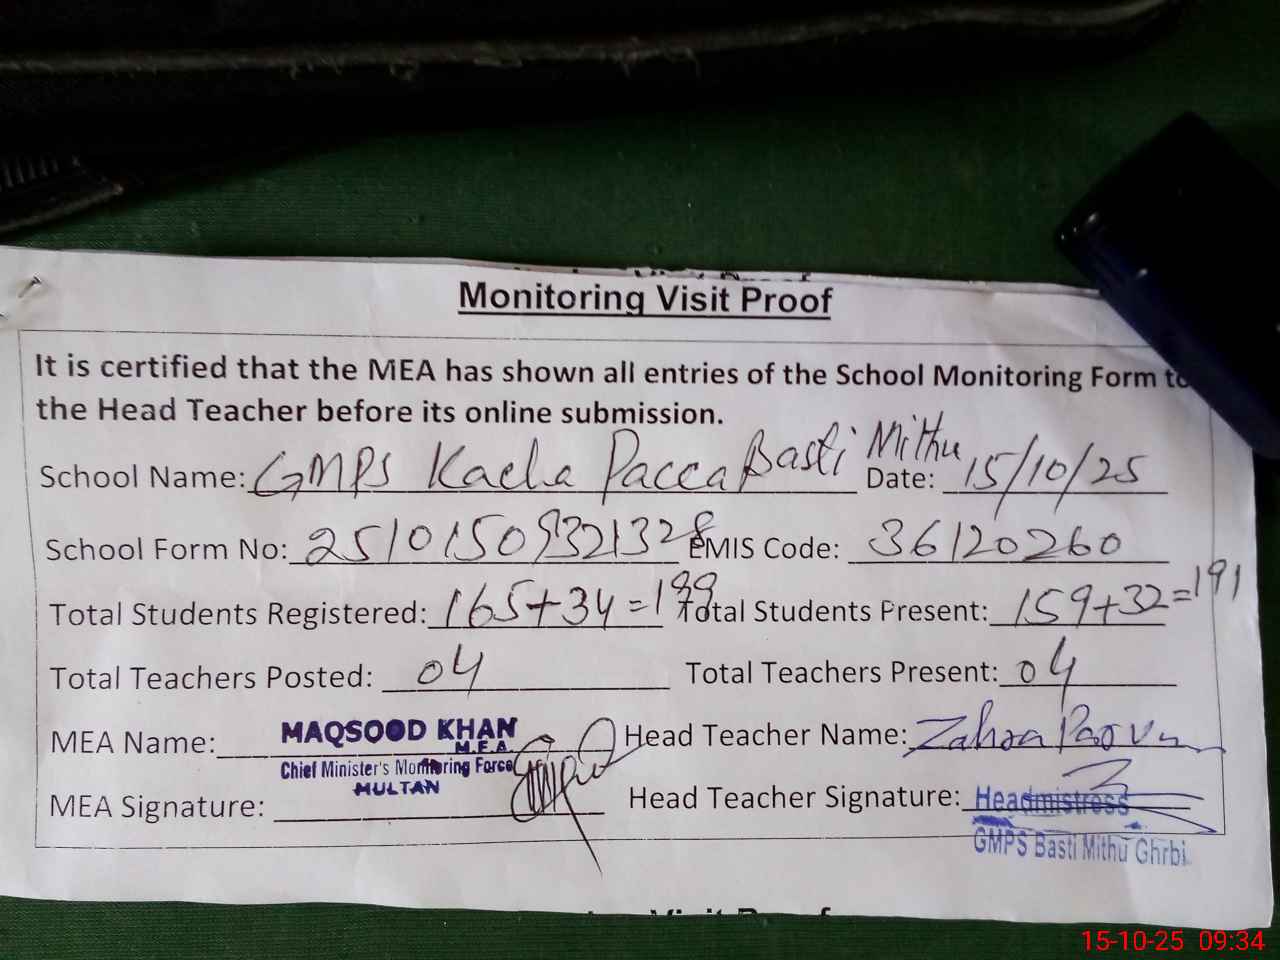 Monitoring Visit Proof
It is certified that the MEA has shown all entries of the School Monitoring Form to
the Head Teacher before its online submission.
School Name: GMPS Kacha Pacca Basti Mithu Date: 15/10/25
School Form No: 25101509321328 EMIS Code: 36120260
Total Students Registered: 165+34=199 Total Students Present: 159+32=191
Total Teachers Posted: 04 Total Teachers Present: 04
MEA Name: MAQSOOD KHAN Head Teacher Name: Zahra Parveen
M.E.A.
Chief Minister's Monitoring Force
MULTAN
MEA Signature: Head Teacher Signature: Headmistress
GMPS Basti Mithu Ghrbi
15-10-25 09:34